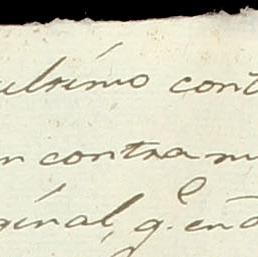 ulsimo cont
n contra m
ginal, q.e en